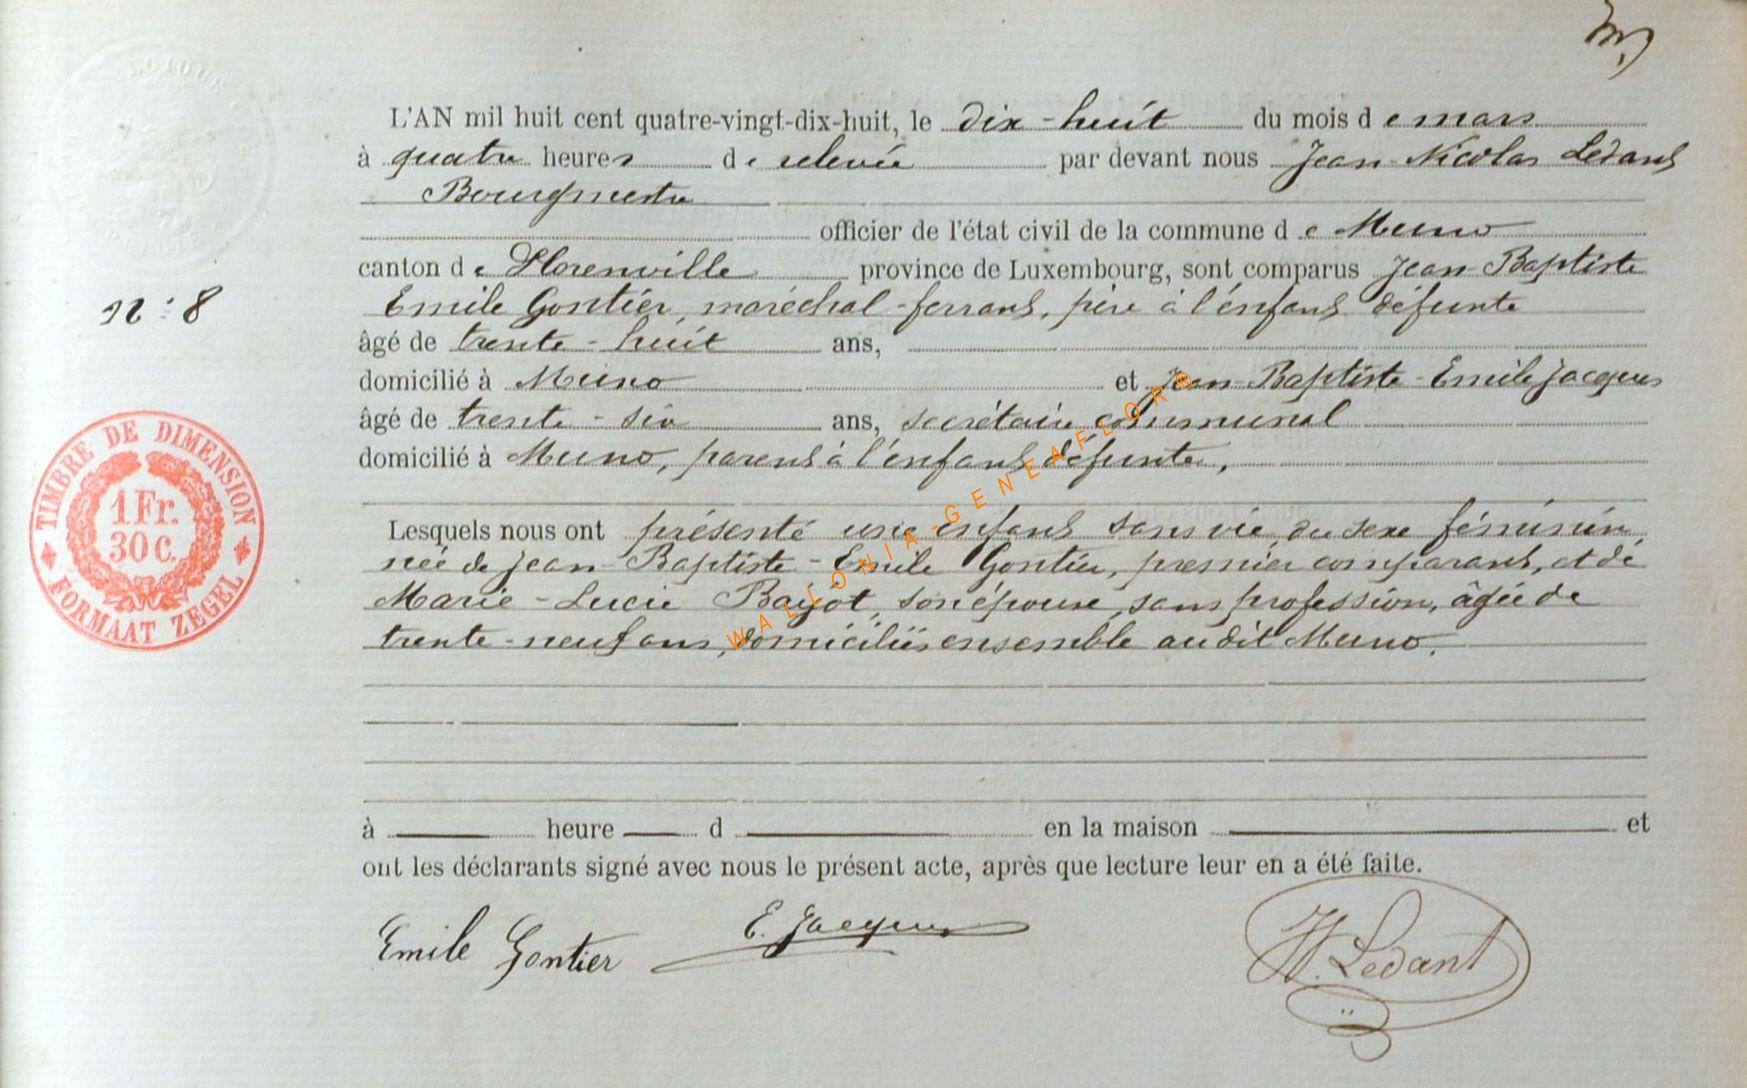 L'AN mil huit cent quatre-vingt-dix-huit, le dix-huit du mois de mars
à quatre heures de relevée par devant nous Jean-Nicolas Ledant
Bourgmestre
officier de l'état civil de la commune de Muno
canton de Florenville province de Luxembourg, sont comparus Jean-Baptiste
Emile Gontier, maréchal-ferrant, père à l'enfant défunte
N: 8
âgé de trente-huit ans,
domicilié à Muno et Jean-Baptiste-Emile Jacques
âgé de trente-six ans, secrétaire communal
domicilié à Muno, parent à l'enfant défunte,
TIMBRE DE DIMENSION
1 Fr.
30 C.
FORMAAT ZEGEL
Lesquels nous ont présenté une enfant sans vie du sexe féminin
née de Jean-Baptiste-Emile Gontier, premier comparant, et de
Marie-Lucie Bajot, son épouse, sans profession, âgée de
trente-neuf ans, domiciliés ensemble au dit Muno.
WALLONIA-GENEAFLORE
à heure d en la maison et
ont les déclarants signé avec nous le présent acte, après que lecture leur en a été faite.
Emile Gontier E. Jacques N. Ledant